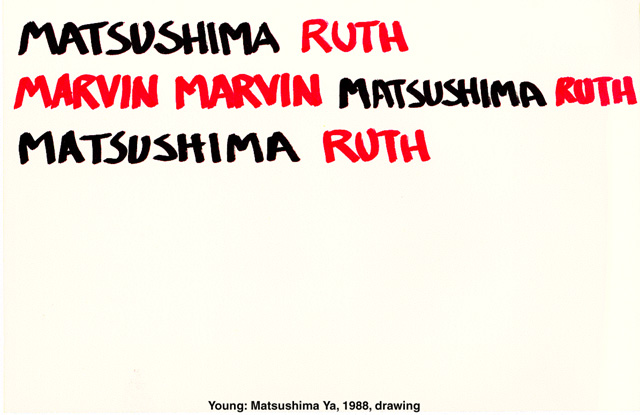 MATSUSHIMA RUTH
MARVIN MARVIN MATSUSHIMA RUTH
MATSUSHIMA RUTH
Young: Matsushima Ya, 1988, drawing